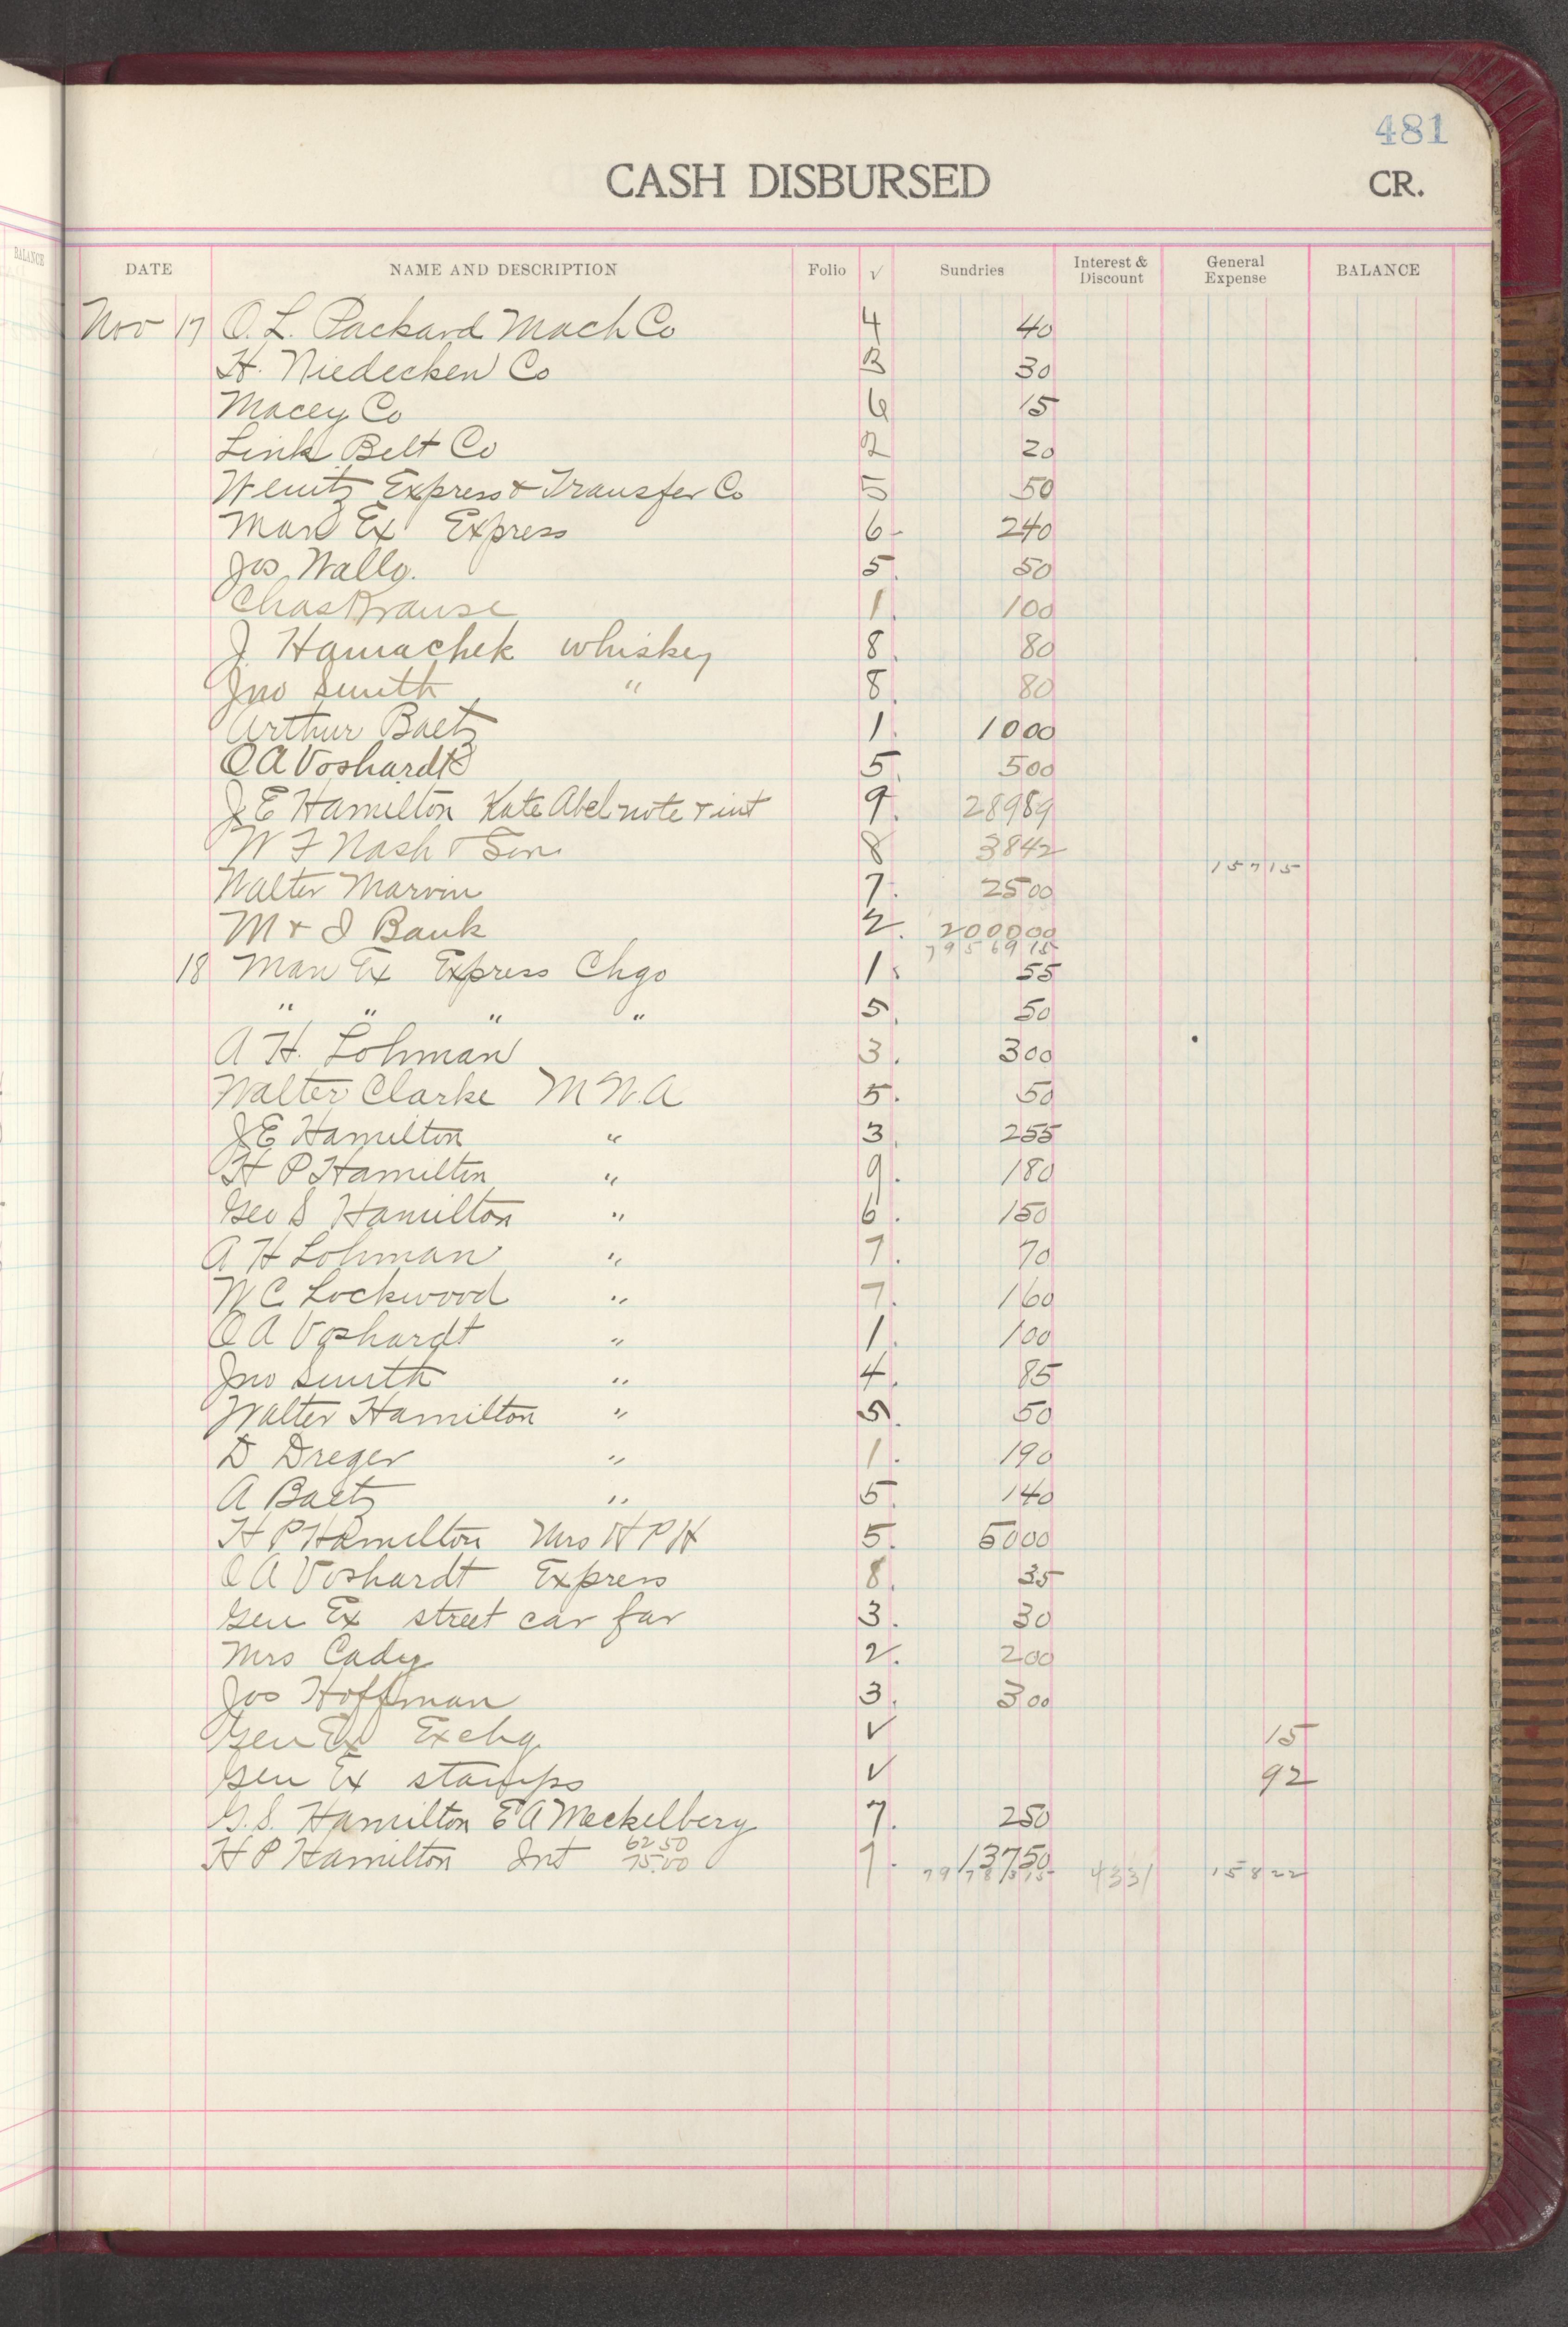 481
CASH DISBURSED CR.
BALANCE
DATE NAME AND DESCRIPTION Folio √ Sundries Interest & Discount General Expense BALANCE
Nov 17 O. L. Packard Mach Co 4 40
H. Niedecken Co 3 30
Macey Co 6 15
Link Belt Co 2 20
Express & Transfer Co 5 50
Man Ex Express 6 240
Jos Wallg. 5. 50
Chas Krause 1. 100
J. Hamachek whiskey 8. 80
Jno Smith " 8. 80
Arthur Baetz 1. 1000
O A Voshardt 5. 500
J E Hamilton Kate Abel note & int 9. 28989
W F Nash & Son 8 3842
15715
Walter Marvin 7. 2500
M & I Bank 2. 200000
7956915
18 Man Ex Express Chgo 1. 55
" " " " 5. 50
A H. Lohman 3. 300
Walter Clarke M W. A 5. 50
J E Hamilton " 3. 255
H P Hamilton " 9. 180
Geo S Hamilton " 6. 150
A H Lohman " 7. 70
W C Lockwood " 7. 160
O A Voshardt " 1. 100
Jno Smith " 4. 85
Walter Hamilton " 5. 50
D Dreger " 1. 190
A Baetz " 5. 140
H P Hamilton Mrs H P H 5. 5000
O A Voshardt Express 8. 35
Gen Ex street car far 3. 30
Mrs Cady 2. 200
Jos Hoffman 3. 300
Gen Ex Exchg √ 15
Gen Ex stamps √ 92
G. S. Hamilton E A Meckelberg 7. 250
62 50
H P Hamilton Int 75.00 7. 13750
4331 15822